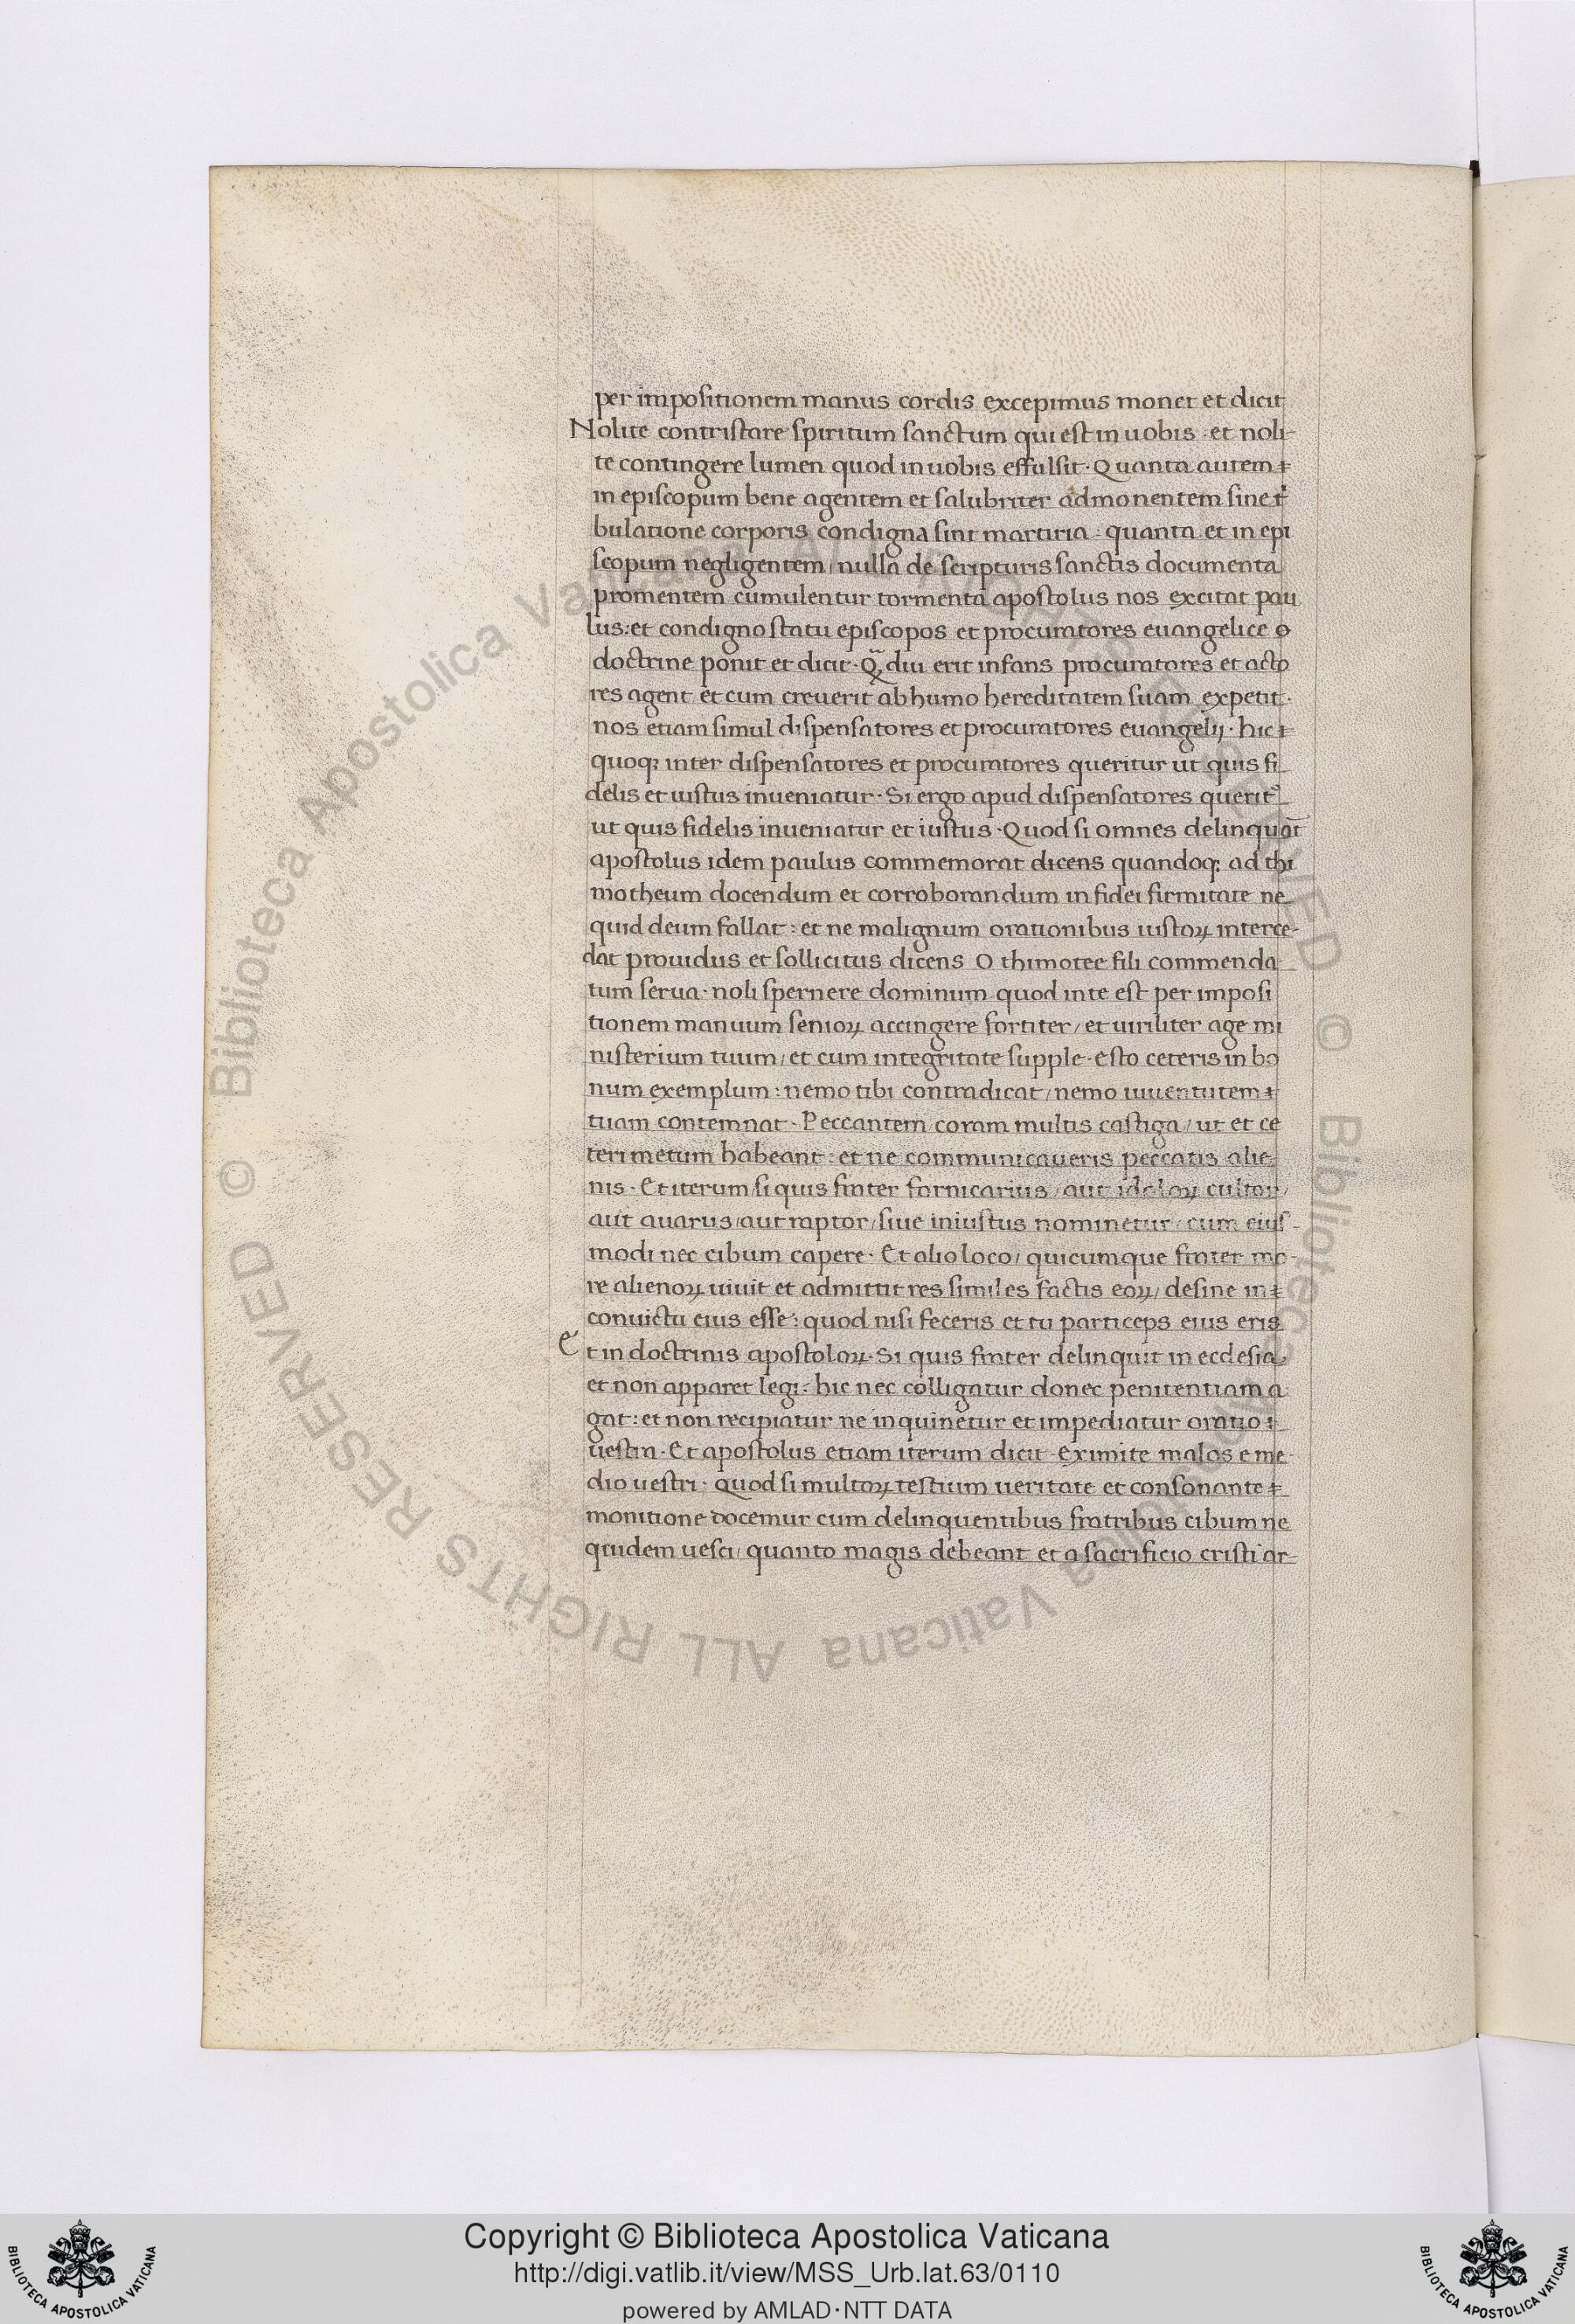 per impositionem manus cordis excepimus monet et dicit
Nolite contristare spiritum sanctum qui est in uobis · et noli-
te contingere lumen quod in uobis effulsit · Quanta autem
in episcopum bene agentem et salubriter admonentem sine t̛
bulatione corporis condigna sint martiria : quanta et in epi
scopum negligentem / nulla de scripturis sanctis documenta
promentem cumulentur tormenta apostolus nos excitat pau
lus : et condigno statu episcopos et procuratores euangelice o
doctrine ponit et dicit · Qͣ diu erit infans procuratores et acto
res agent et cum creuerit ab humo hereditatem suam expetit ·
nos etiam simul dispensatores et procuratores euangelij · hic
quoqꝫ inter dispensatores et procuratores queritur ut quis fi
delis et iustus inueniatur · Si ergo apud dispensatores querit᷒
ut quis fidelis inueniatur et iustus · Quod si omnes delinquāt
apostolus idem paulus commemorat dicens quandoqꝫ ad thi
motheum docendum et corroborandum in fidei firmitate ne
quid deum fallat : et ne malignum orationibus iustoꝝ interce-
dat prouidus et sollicitus dicens O thimotee fili commenda
tum serua · noli spernere dominum quod in te est per imposi
tionem manuum senioꝝ accingere fortiter / et uiriliter age mi
nisterium tuum / et cum integritate supple · esto ceteris in bo
num exemplum : nemo tibi contradicat / nemo iuuentutem
tuam contemnat · Peccantem coram multis castiga / ut et ce
teri metum habeant : et ne communicaueris peccatis alie
nis · Et iterum / si quis frater fornicarius / aut idoloꝝ cultor /
aut auarus / aut raptor / siue iniustus nominetur / cum eius-
modi nec cibum capere · Et alio loco / quicumque frater mo-
re alienoꝝ uiuit et admittit res similes factis eoꝝ / desine in
conuictu eius esse : quod nisi feceris et tu particeps eius eris
Et in doctrinis apostoloꝝ · Si quis frater delinquit in ecclesia
et non apparet legi : hic nec colligatur donec penitentiam a
gat : et non recipiatur ne inquinetur et impediatur oratio
uestra · Et apostolus etiam iterum dicit · Eximite malos e me-
dio uestri · quod si multoꝝ testium ueritate et consonante
monitione docemur cum delinquentibus fratribus cibum ne
quidem uesci / quanto magis debeant et a sacrificio cristi ar-
© Biblioteca Apostolica Vaticana ALL RIGHTS RESERVED © Biblioteca Apostolica Vaticana ALL RIGHTS RESERVED
Copyright © Biblioteca Apostolica Vaticana
http://digi.vatlib.it/view/MSS_Urb.lat.63/0110
powered by AMLAD·NTT DATA
BIBLIOTECA APOSTOLICA VATICANA
BIBLIOTECA APOSTOLICA VATICANA